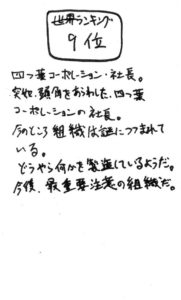 世界ランキング
9位
四つ葉コーポレーション・社長。
突如、頭角をあらわした、四つ葉
コーポレーションの社長。
今のところ組織は謎につつまれて
いる。
どうやら何かを製造しているようだ。
今後、最重要注意の組織だ。